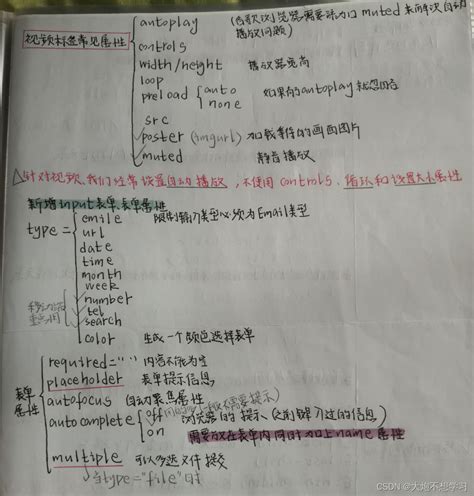 视频标签常见属性
autoplay (谷歌浏览器需要添加 muted 来解决自动播放问题)
controls
width/height 播放器宽高
loop
preload { auto none 如果有autoplay就忽略
src
poster (imgurl) 加载等待的画面图片
muted 静音播放
△针对视频,我们经常设置自动播放,不使用controls,循环和设置大小属性
新增input表单,表单属性
type=
emile 限制输入类型必须为Email类型
url
date
time
month
week
number
tel
search
color 生成一个颜色选择表单
表单属性
required=" " 内容不能为空
placeholder 表单提示信息
autofocus 自动聚焦属性
autocomplete { off
on 浏览器的提示、(之前键入过的信息)
需要放在表单内同时加上name属性
multiple 可以多选文件提交
当type="file"时
CSDN @大炮不想学习